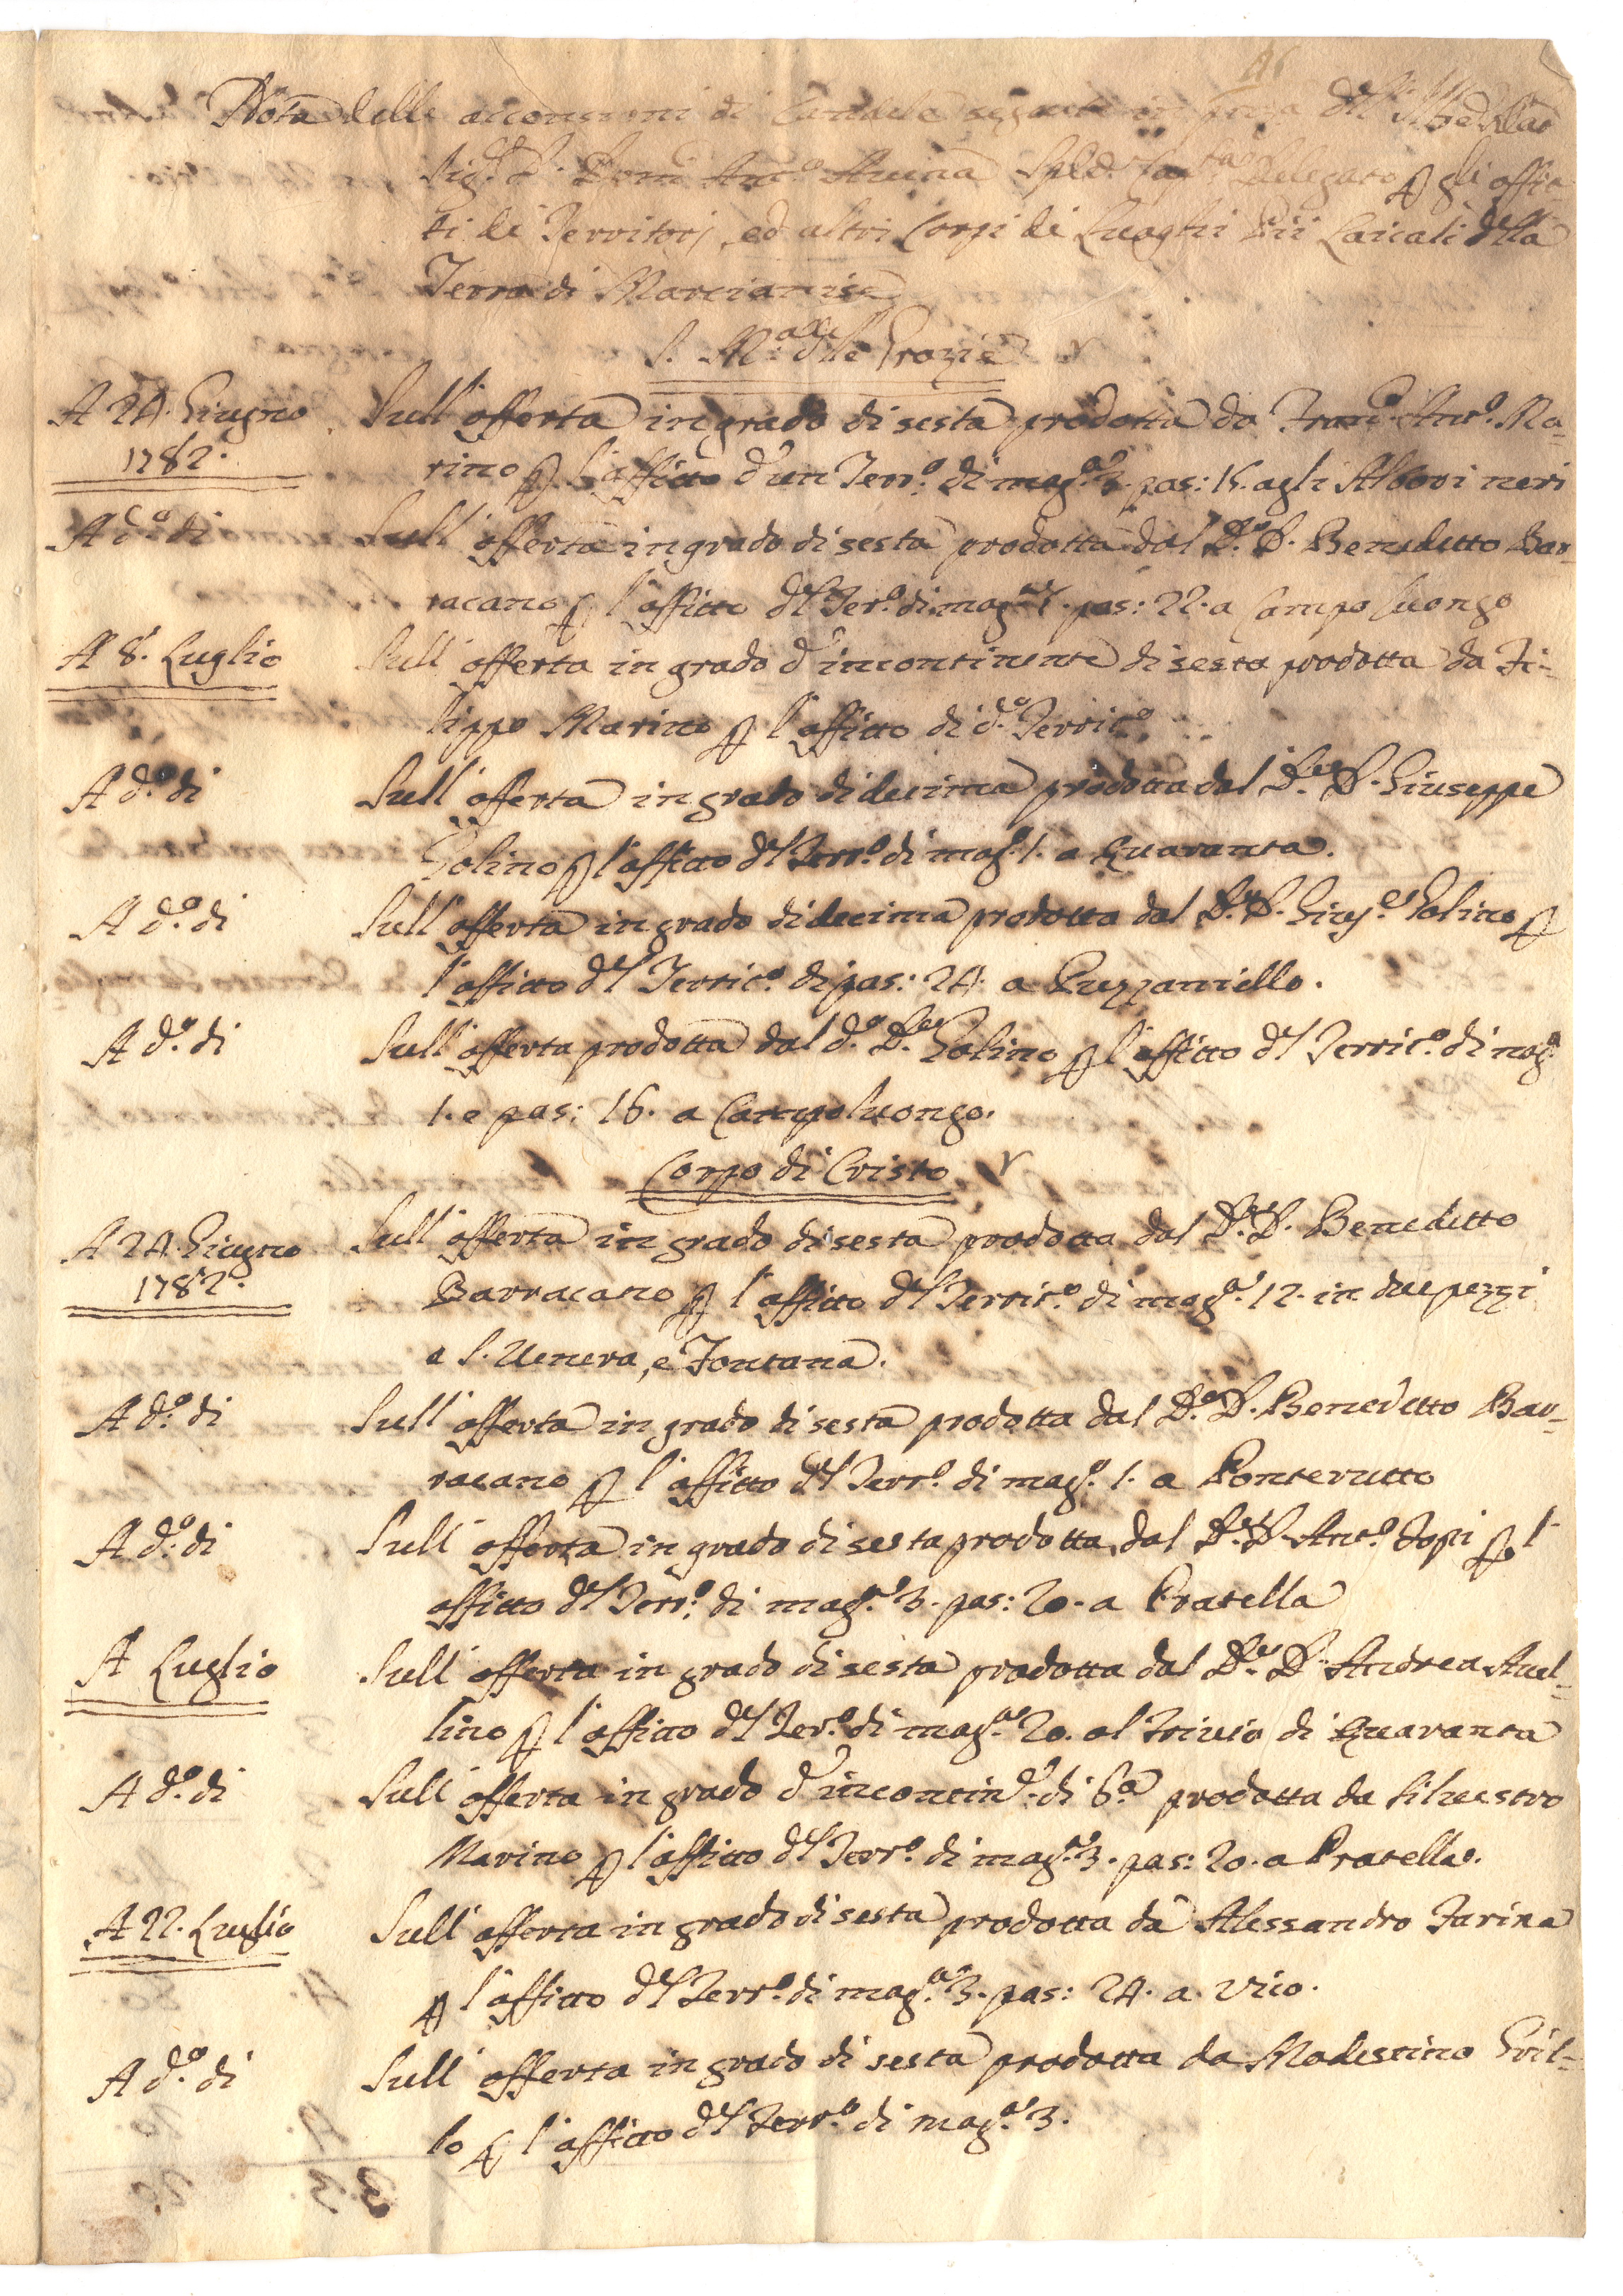 Nota delle accensioni di Candele seguite in d'l'
Sig.r D. Dom.co Ant.o Delegato p gli affit-
ti de' Territorj, ed altri Corpi de Luoghi Pii Laicali d'lla
Terra di Marcianise
S. M.a d'lle Grazie
A 24. Giugno
1782.
Sull' offerta in grado di sesta prodotta da Fran.co Ant.o Ma-
rino p l'affitto d'un Terr.o di mog.a 3. pas: 15. agli Albori neri
A d.o di
Sull' offerta in grado di sesta prodotta dal D.r D. Benedetto Bar-
racano p l'affitto d'l Ter.o di mog.a pas: 22. a Campo luongo
A 8. Luglio
Sull' offerta in grado d' incontinente di sesta prodotta da Fi-
lippo Marino p l'affitto di d.o Territ.o
A d.o di
Sull' offerta in grado di decima prodotta dal D.r D. Giuseppe
Golino p l'affitto d'l Terr.o di mog.o 1. a Quaranta.
A d.o di
Sull' offerta in grado di decima prodotta dal D.r D. Gius.e Golino p
l'affitto d'l Territ.o di pas: 24. a Puzzaniello.
A d.o di
Sull' offerta prodotta dal d.o D.r Golino p l'affitto d'l Territ.o di mog.a
1. e pas: 16. a Campoluongo.
Corpo di Cristo
A 24. Giugno
1782.
Sull' offerta in grado di sesta prodotta dal D.r D. Benedetto
Barracano p l'affitto d'l Territ.o di mog.a 12. in due pezzi
a S. Venera, e Fontana.
A d.o di
Sull' offerta in grado di sesta prodotta dal D.r D. Benedetto Bar-
racano p l'affitto d'l Terr.o di mog.o 1. a Ponterutto
A d.o di
Sull' offerta in grado di sesta prodotta dal D.r D. Ant.o Topi p l'
affitto d'l Terr.o di mog.a 3. pas: 20. a Pratella
A Luglio
Sull' offerta in grado di sesta prodotta dal D.r D. Andrea Avel-
lino p l'affitto d'l Ter.o di mog.a 20. al Trivio di Quaranta
A d.o di
Sull' offerta in grado d' incontin.e di 6.a prodotta da Silvestro
Marino p l'affitto d'l Terr.o di mog.a 3. pas: 20. a Pratella.
A 22. Luglio
Sull' offerta in grado di sesta prodotta da Alessandro Farina
p l'affitto d'l Terr.o di mog.a 3. pas: 24. a Vico.
A d.o di
Sull' offerta in grado di sesta prodotta da Modestino Gril-
lo p l'affitto d'l Terr.o di mog.a 3.